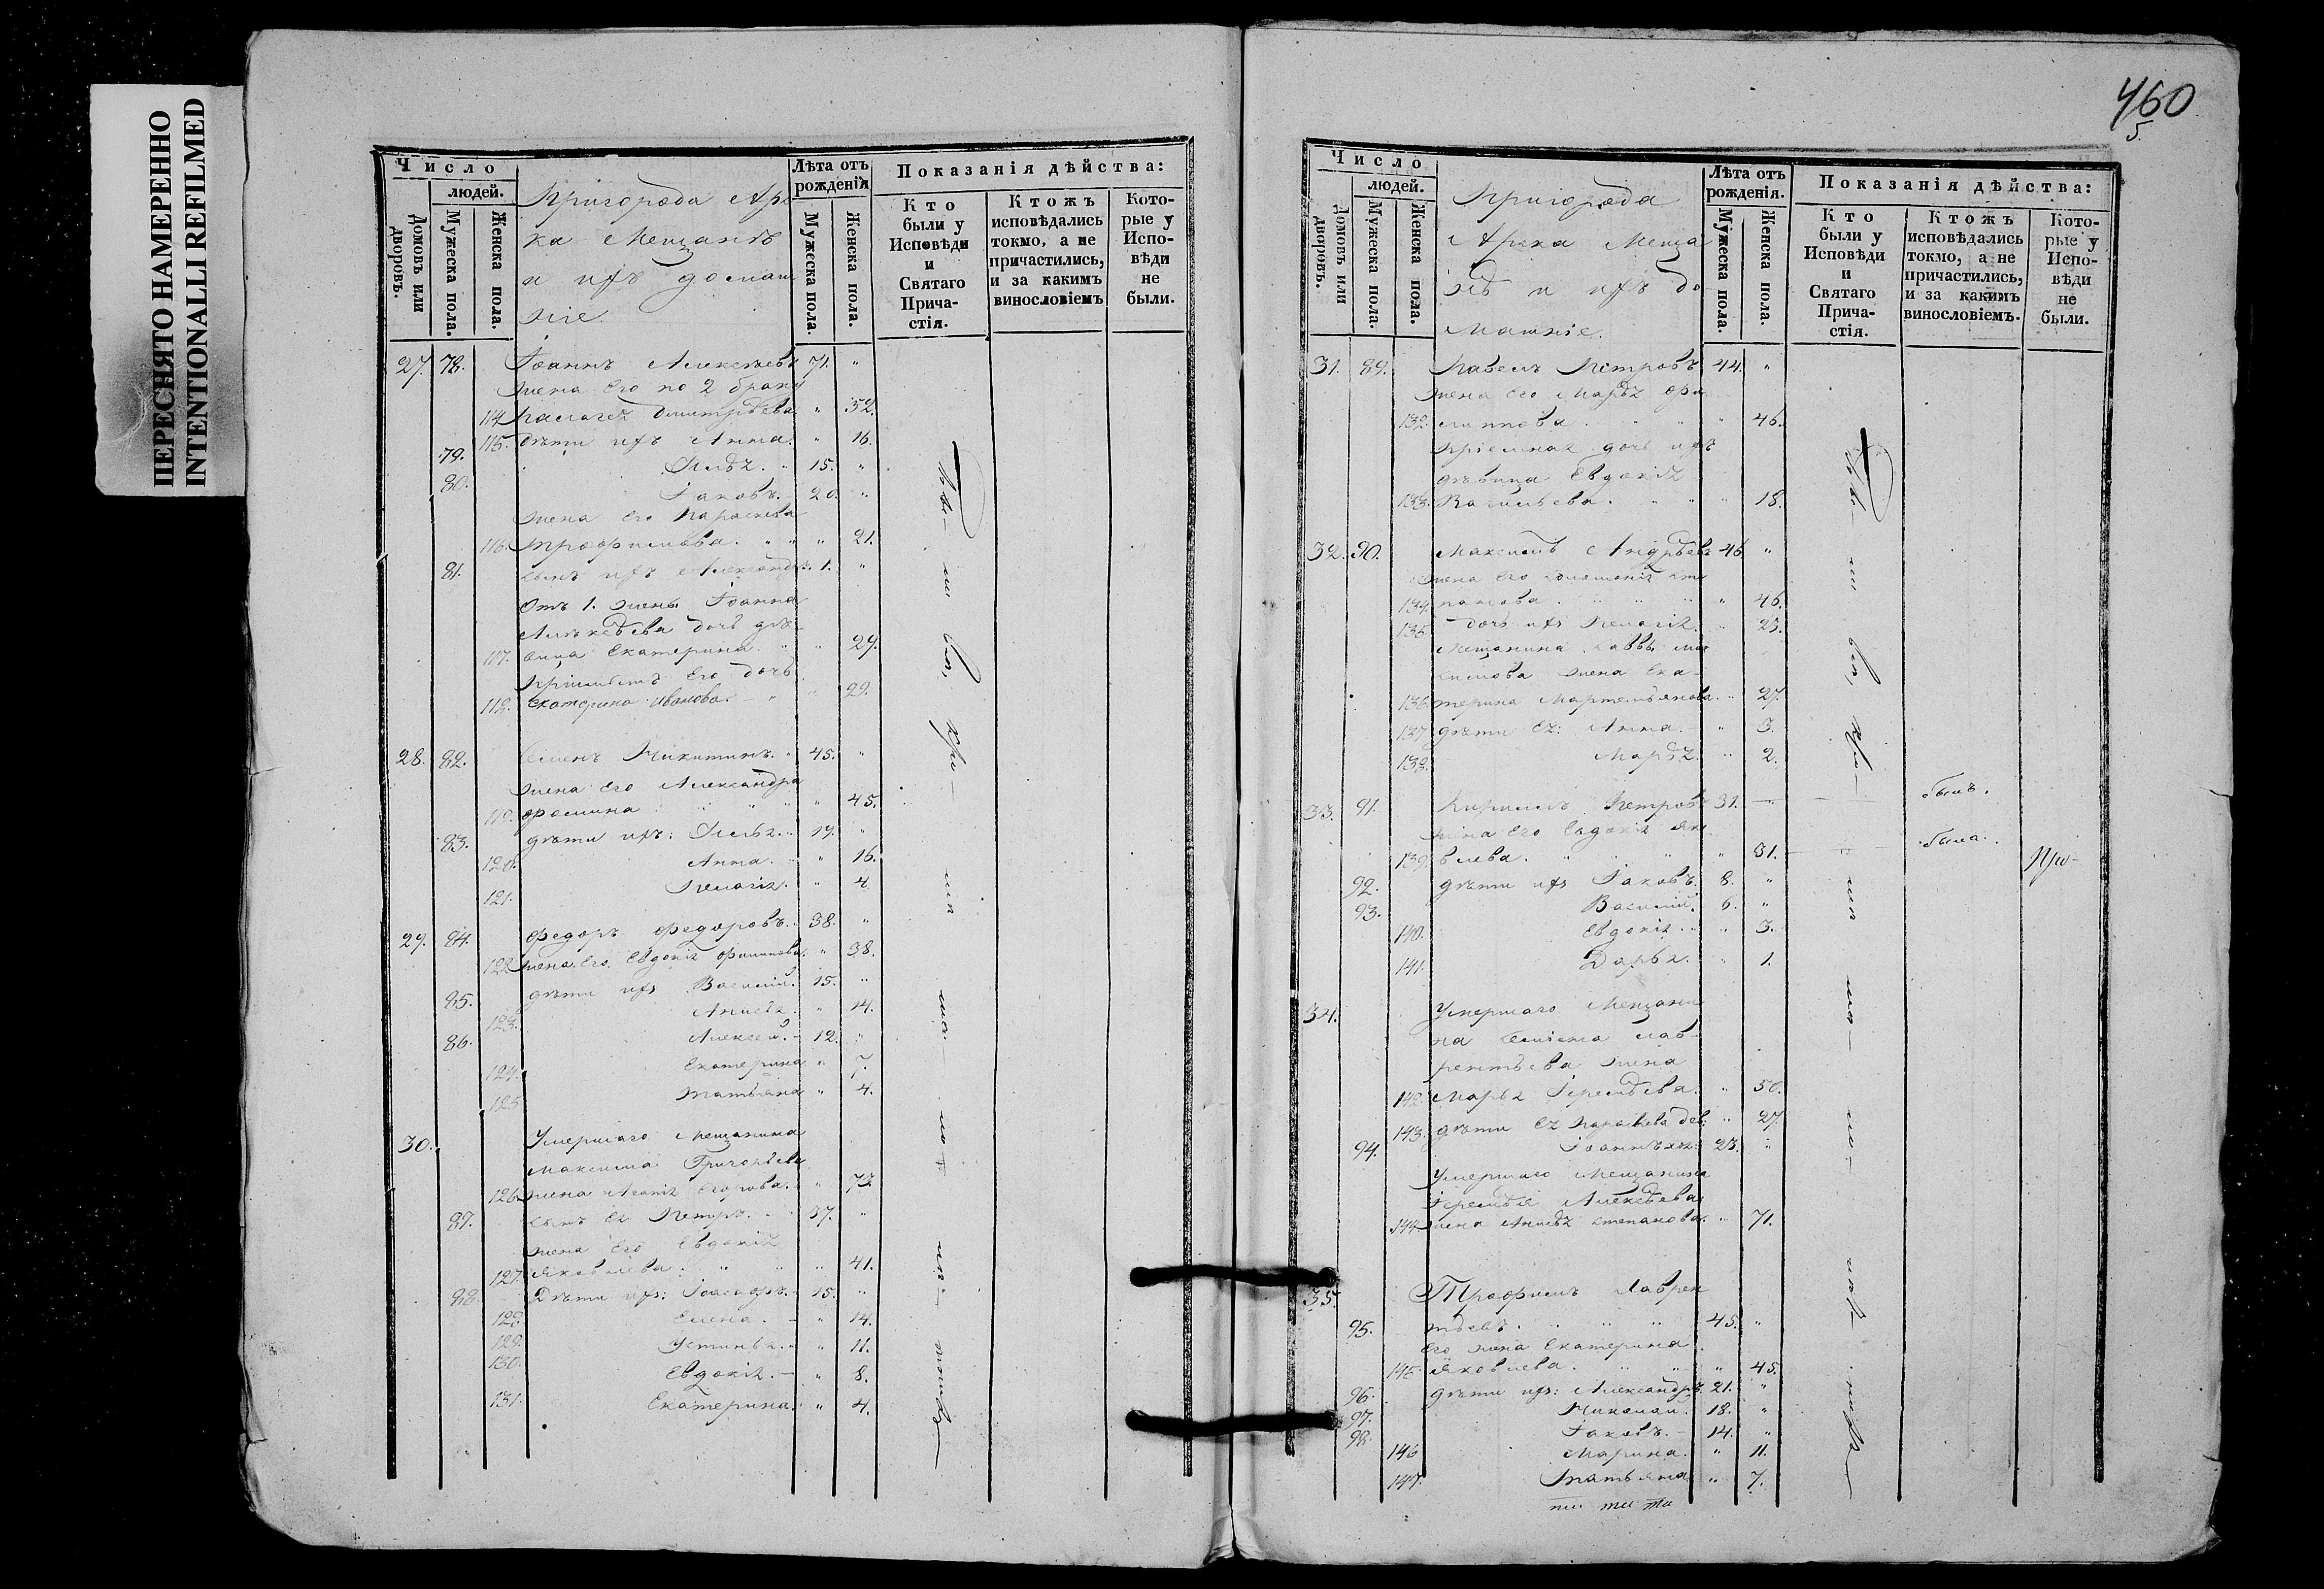 ПЕРЕСНЯТО НАМЕРЕННО
INTENTIONALLI REFILMED
460
5
Число
людей.
Домовъ или дворовъ.
Мужеска пола.
Женска пола.
Пригорода Ар
ка Мещанъ
и ихъ домаш
ніе.
Лѣта отъ рожденія
Мужеска пола.
Женска пола.
Показанія дѣйства:
Кто были у Исповѣди и Святаго Прича-стія.
Ктожъ исповѣдались токмо, а не причастились, и за какимъ винословіемъ
Кото-рые у Испо-вѣди не были.
27. 78. Іоаннъ Алексѣевъ 71. "
жена Его по 2 браку
114 Палагея Дмитріева " 52.
115. дѣти ихъ Анна. " 16.
79. Илья. " 15. "
80. Іаковъ. 20. "
жена Его Параскева
116. Трофимова. " " " 21.
81. сынъ ихъ Александръ. 1. "
Отъ 1. жены Іоанна
Алексѣева дочь дѣ-
117. вица Екатерина. " " 29.
Его дочь
118. Екатерина Иванова. " " 29.
28. 82. Семенъ Никитинъ. " 45. "
жена Его Александра
119. Фомина " " " " 45.
83. дѣти ихъ: Илья. " 19. "
120. Анна. " " 16.
121. Пелагія. " 4
29. 84. Федоръ Федоровъ. 38. "
122 жена Его Евдокія Филипова. " 38.
85. дѣти ихъ Василій. 15. "
123. Анисья. " 14.
86. Алексей. - 12. "
124. Екатерина " 7.
125 Татьяна " 4.
30. Умершаго Мещанина
Максима Григорьева
126. жена Агапія Егорова. " 73.
87. сынъ Ея Петръ. " 37. "
жена Его Евдокія
127. Яковлева. " " " 41.
88. Дѣти ихъ: Іоасафъ. 15. "
128. Елена. - " 14.
129. Устинья. " 11.
130. Евдокія. - " 8.
131. Екатерина. " 4.
Число
людей.
Домовъ или дворовъ.
Мужеска пола.
Женска пола.
Пригорода
Арска Меща
нъ и ихъ до
машніе.
Лѣта отъ рожденія.
Мужеска пола.
Женска пола.
Показанія дѣйства:
Кто были у Исповѣди и Святаго Прича-стія.
Ктожъ исповѣдались токмо, а не причастились, и за какимъ винословіемъ.
Кото-рые у Испо-вѣди не были.
31. 89. Павелъ Петровъ 44. "
жена Его Марья Фи
132. липпова. " " " 46.
пріемная дочь ихъ
дѣвица Евдокія
133. Васильева. " " " 18.
32. 90. Максимъ Андрѣевъ 46 "
жена Его Соломонія Сте
134. панова. " " " 46.
135. дочь ихъ Пелагія. " 23.
Мещанина Саввы Мак
симова жена Ека-
136 терина Мартемьянова. " 27.
137 дѣти Ея: Анна. " 3.
138. Марья. " 2.
33. 91. Кириллъ Петровъ 31. - былъ.
жена Его Евдокія Як
139. влева. " " " " 31. была.
92. дѣти ихъ Іаковъ. 8. "
93. Василій. 6. "
140. Евдокія. " " 3.
141. Дарья. " 1.
34. Умершаго Мещани
на Семена Лав-
рентьева жена
142 Марья Іереміева. " 50.
143. дѣти Ея Параскева дев: " 27.
94. Іоанникій. 23. "
Умершаго Мещанина
Іереміи Алексѣева
144 жена Анисья Степанова. " 71.
35. Трофимъ Лаврен
95. тьевъ. " " " 45. "
Его жена Екатерина
145 Яковлева. " " " 45.
96. дѣти ихъ: Александръ. 21. "
97. Николай. 18. "
98. Іаковъ. - 14. "
146 Марина. " 11.
147. Татьяна " 7.